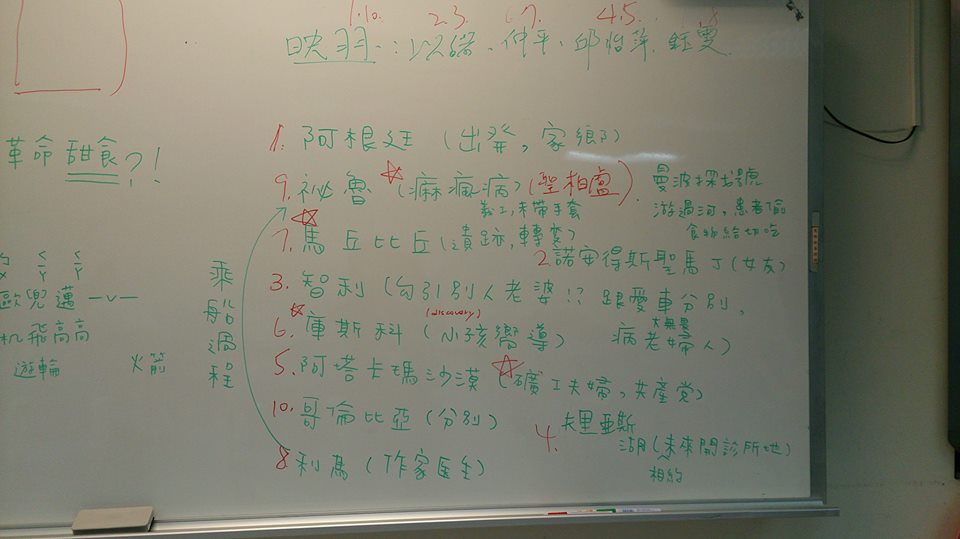 1.10. 2.3. 6.9. 4.5. 8
映羽: 以諾、仲平、邱怡萍、鈺雯
革命甜食?!
1. 阿根廷 (出發, 家鄉)
9. 祕魯 ☆ (痲瘋病) (聖柏盧)
義工, 未帶手套
曼波探戈號
游過河, 患者偷
食物給切吃
7. ☆ 馬丘比丘 (遺跡, 轉變)
2. 諾安得斯聖馬丁 (女友)
3. 智利 (勾引別人老婆!? 跟愛車分別,
病老婦人)
大無畏
6. ☆ 庫斯科 (小孩嚮導)
(discovery)
5. 阿塔卡瑪沙漠 ☆ (礦工夫婦, 共產党)
10. 哥倫比亞 (分別)
4. 夫里亞斯
湖 (未來開診所地)
相約
8. 利馬 (作家医生)
乘船過程
ㄑ ㄑ
ㄚ ㄚ
歐兜邁 一v一
机飛高高
遊輪 火箭